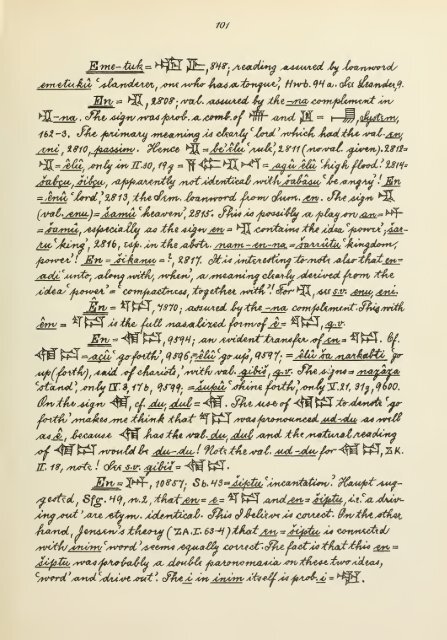 101
Eme-tuk = 𒅴𒌇, 848, reading assured by loanword
emetukû 'slanderer, one who has a tongue,' Hwb. 94 a. Cf. Leander, 9.
En = 𒂗, 2808; val. assured by the -na complement in
𒂗-na. The sign was prob. a comb. of and = , System,
162-3. The primary meaning is clearly 'lord' which had the val. en,
eni, 2810, passim. Hence 𒂗 = be'êlu 'rule', 2811 (no val. given). 2812 =
𒂗 = êlû, only in II. 30, 19 g = = agû êlû 'high flood.' 2814 =
šabçu, šibçu, apparently not identical with šabâsu 'be angry'! En
= ênû 'lord', 2813, the Sem. loanword from Sum. en. The sign 𒂗
(val. enu) = šamû 'heaven', 2815. This is possibly a play on an = 𒀭
= šamû, especially as the sign en = 𒂗 contains the idea 'power'; šar-
ru 'king', 2816, esp. in the abstr. nam-en-na = šarrûtu 'kingdom,
power'! En = šikanu = ?, 2817. It is interesting to note also that en-
adi 'unto, along with, when', a meaning clearly derived from the
idea 'power' = compactness, together with'! For 𒂗, see s.v. enu, eni.
Ên = 𒌓𒁺, 7870; assured by the -na complement. This with
êm = 𒌓𒁺 is the full nasalized form of ê = 𒌓𒁺, q.v.
En = , 9594; an evident transfer of en = 𒌓𒁺. Cf.
= açû 'go forth', 9596; êlû 'go up', 9597. = êlû ša narkabti 'go
up (forth), said of chariots', with val. gibiš, q.v. The signs = nazâza
'stand', only IV. 8, 17 b, 9599. = šupû 'shine forth', only V. 21. 31 g, 9600.
On the sign , cf. du, dul = . The use of to denote 'go
forth' makes me think that 𒌓𒁺 was pronounced ud-du as well
as ê, because has the val. du, dul and the natural reading
of would be du-du! Note the val. ud-du for , ZK.
II. 18, note! See s.v. gibiš = .
En = , 10857; Sb. 43 = šiptu 'incantation.' Haupt sug-
gested, Sfg. 49, n. 2, that en = e = 𒌓𒁺 and en = šiptu, i.e. 'a driv-
ing out' are etym. identical. This I believe is correct. On the other
hand, Jensen's theory (ZA. I. 63-4) that en = šiptu is connected
with inim 'word' seems equally correct. The fact is that this en =
šiptu was probably a double paronomasia on these two ideas,
'word' and 'drive out'. The i in inim itself is prob. i = .